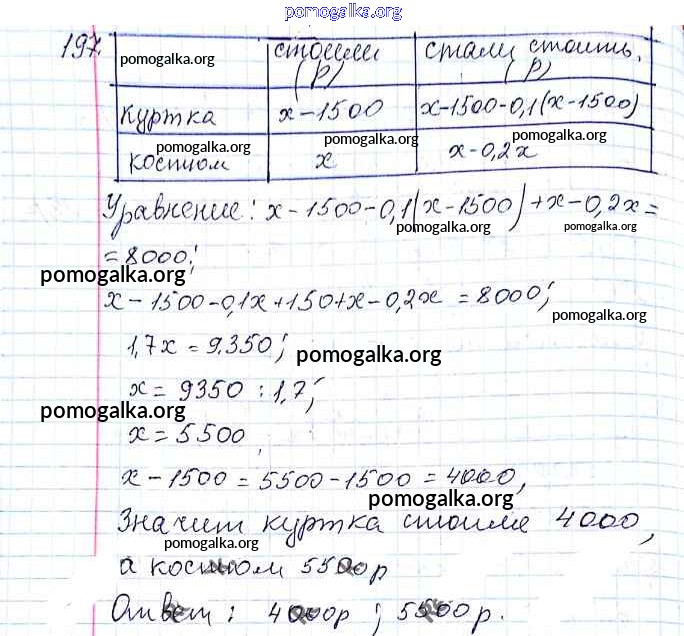 pomogalka.org
197.
pomogalka.org стоили (р) стали стоить, (р)
куртка x-1500 x-1500-0,1(x-1500)
pomogalka.org pomogalka.org pomogalka.org
костюм x x-0,2x
Уравнение: x-1500-0,1(x-1500)+x-0,2x=
pomogalka.org pomogalka.org
=8000;
pomogalka.org
x-1500-0,1x+150+x-0,2x=8000;
pomogalka.org
1,7x=9.350;
pomogalka.org
x=9350:1,7;
pomogalka.org
x=5500,
x-1500=5500-1500=4000,
pomogalka.org
Значит куртка стоила 4000,
pomogalka.org
а костюм 5500р
Ответ: 4000р; 5500р.